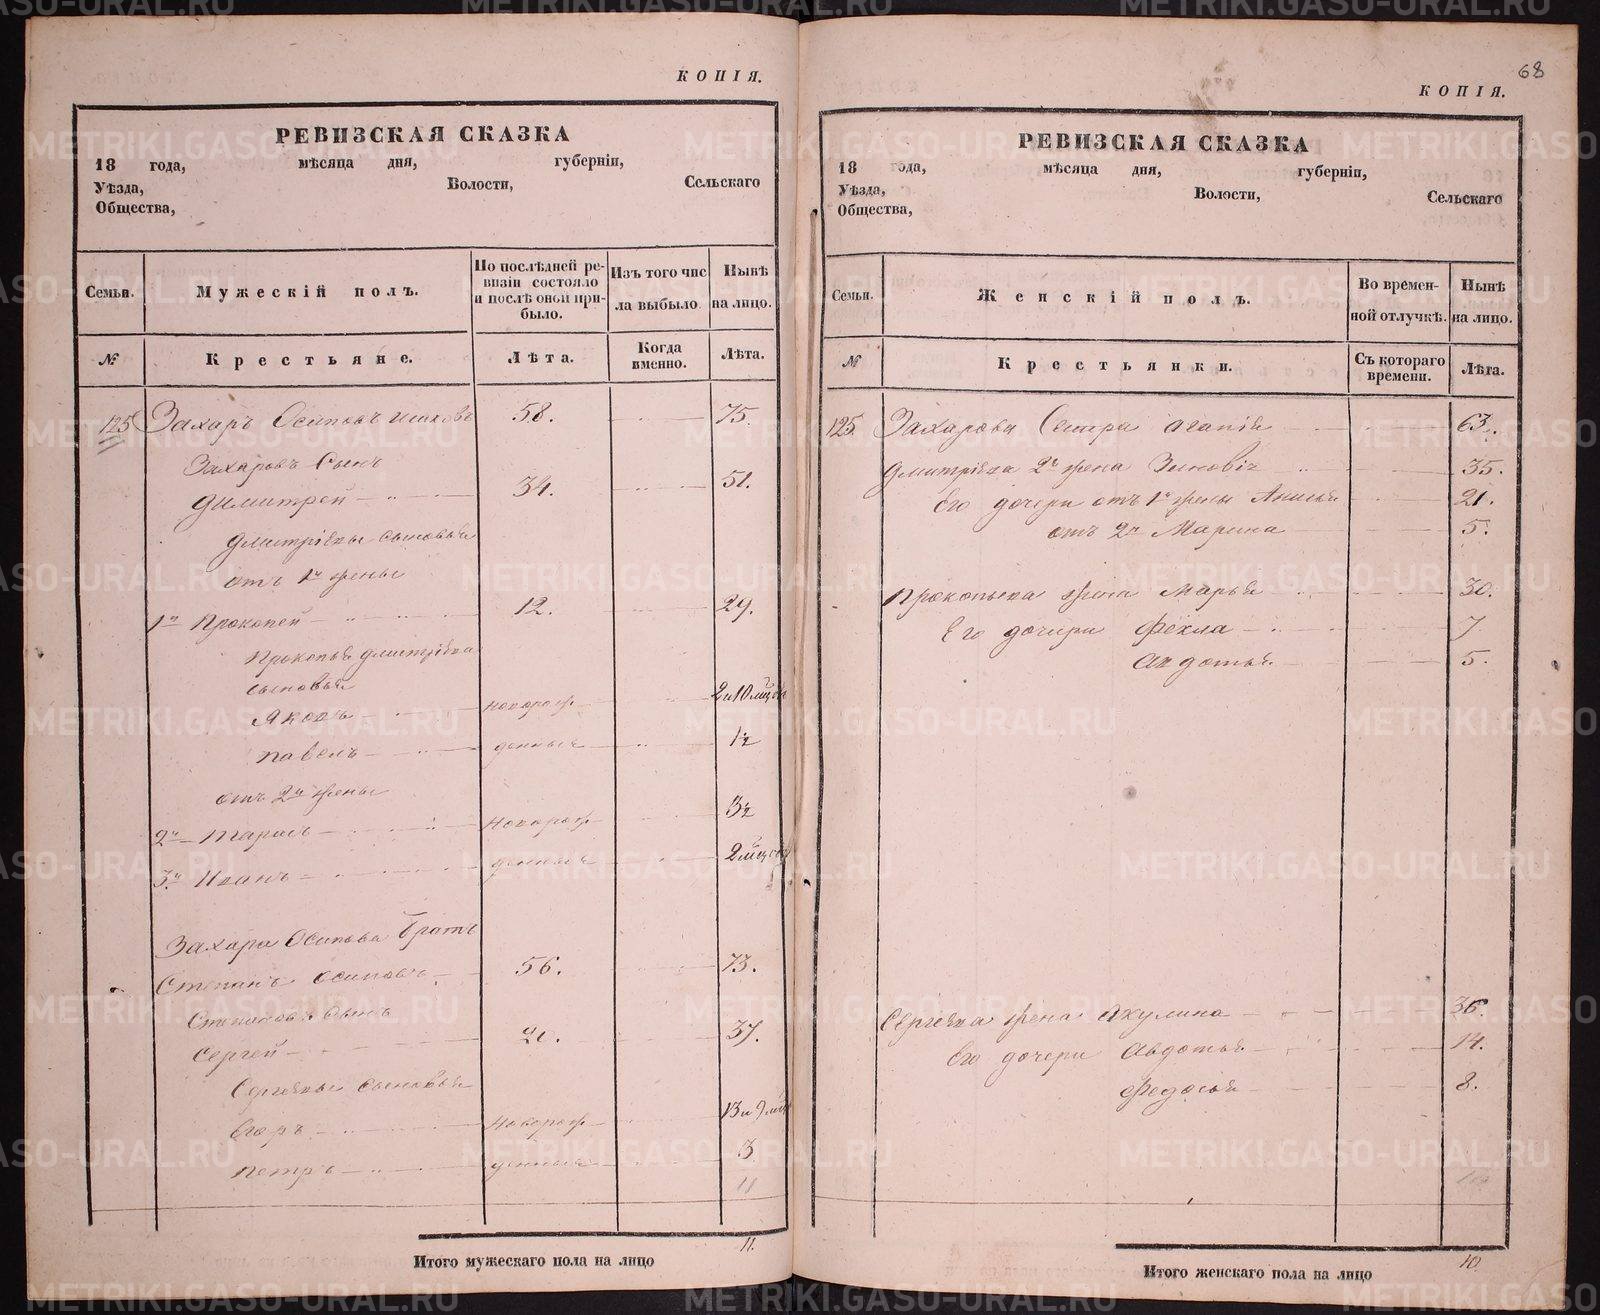 КОПІЯ.
РЕВИЗСКАЯ СКАЗКА
18 года, мѣсяца дня, губерніи,
Уѣзда, Волости, Сельскаго
Общества,
Семьи. Мужескій полъ. По послѣдней ревизіи состояло и послѣ оной прибыло. Изъ того числа выбыло Нынѣ на лицо.
№ Крестьяне. Лѣта. Когда именно. Лѣта.
125 Захаръ Осиповъ 58. 75.
Захаровъ Сынъ
Димитрей 34. 51.
Дмитріевы сыновья
отъ 1й жены
1й Прокопей 12. 29.
Прокопья Дмитріева
сыновья
Яковъ новорож 2 и 10 мѣцов
Павелъ денные 1½
отъ 2й жены
2й Тарасъ новорож 3½
3й Иванъ денные 2 мѣцов
Захара Осипова братъ
Степанъ Осиповъ 56. 73.
Степановъ Сынъ
Сергей 20. 37.
Сергѣевы Сыновья
Егоръ новорож 13 и 9 мѣц
Петръ денные 3
11
Итого мужескаго пола на лицо 11.
68
КОПІЯ.
РЕВИЗСКАЯ СКАЗКА
18 года, мѣсяца дня, губерніи,
Уѣзда, Волости, Сельскаго
Общества,
Семьи. Женскій полъ. Во временной отлучкѣ. Нынѣ на лицо.
№ Крестьянки. Съ котораго времени. Лѣта.
125. Захарова Сестра Агапія 63.
Дмитріева 2я жена Зиновія 35.
Его дочери отъ 1й жены Анисья 21.
отъ 2й Марина 5.
Прокопьева жена Марья 30.
Его дочери Фекла 7
Авдотья 5.
Сергѣева жена Акулина 36.
Его дочери Авдотья 14.
Федосья 8.
10
Итого женскаго пола на лицо 10.
METRIKI.GASO-URAL.RU